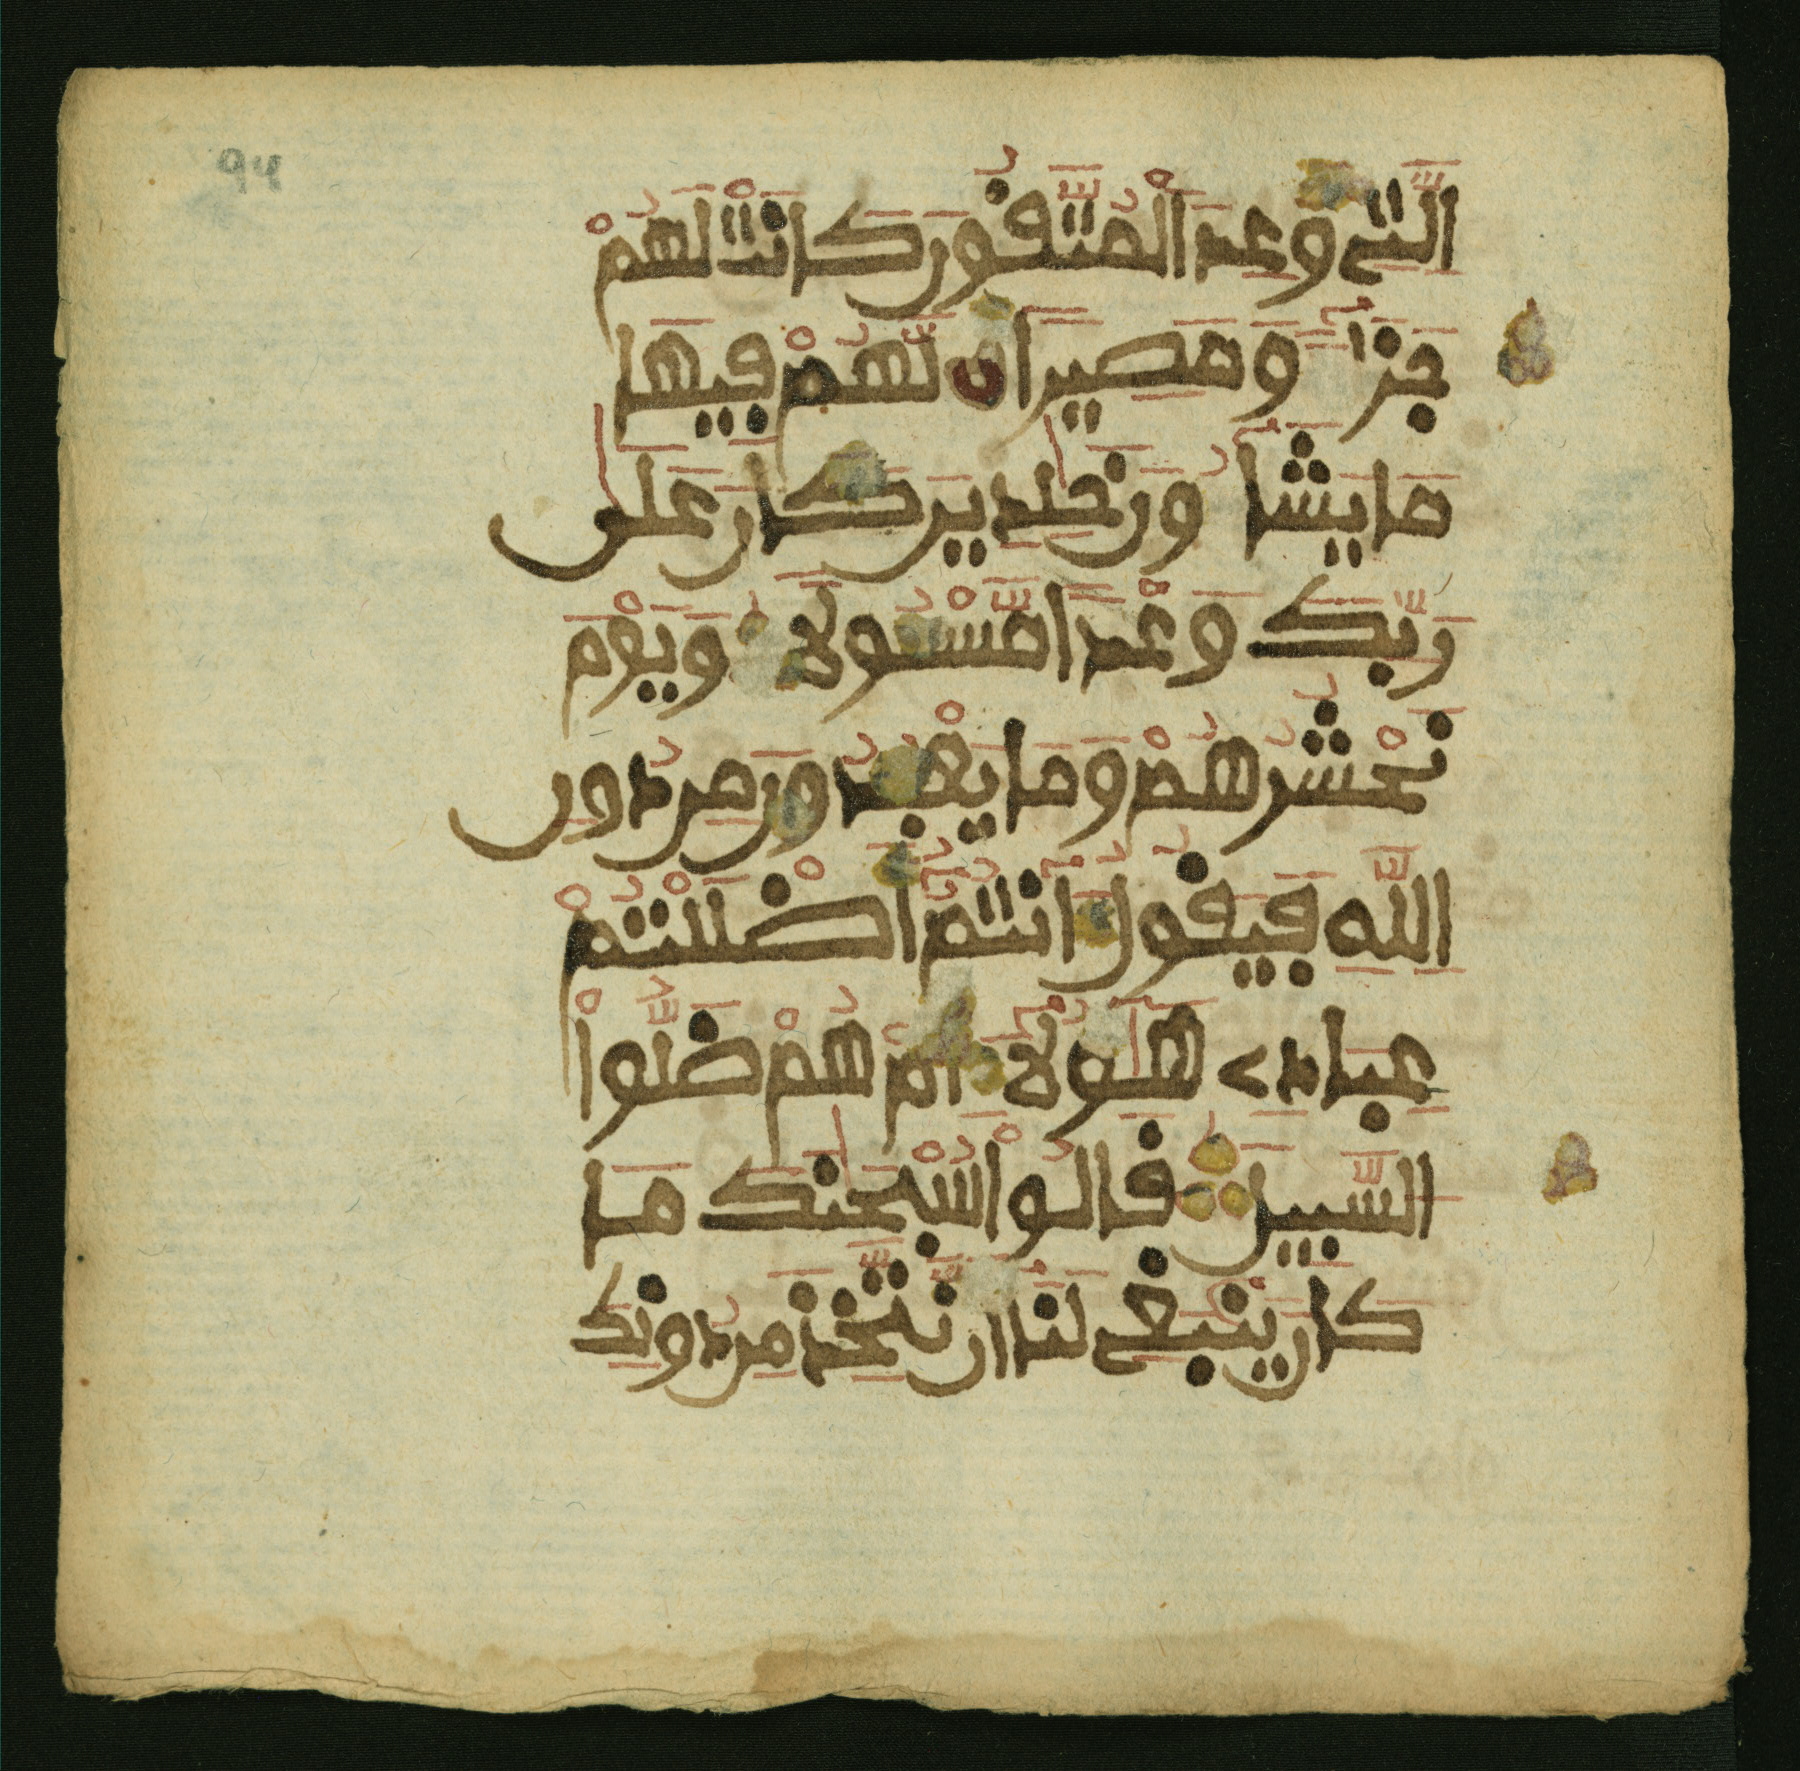 94
الَّتِي وُعِدَ الْمُتَّقُونَ كَانَتْ لَهُمْ
جَزَآءً وَمَصِيرًا لَّهُمْ فِيهَا
مَا يَشَآءُونَ خَٰلِدِينَ كَانَ عَلَىٰ
رَبِّكَ وَعْدًا مَّسْـُٔولًا وَيَوْمَ
نَحْشُرُهُمْ وَمَا يَعْبُدُونَ مِن دُونِ
اللَّهِ فَيَقُولُ ءَآنتُمُۥٓ أَضْلَلْتُمْ
عِبَادِي هَٰٓؤُلَآءِ امْ هُمْ ضَلُّوا
السَّبِيلَ قَالُوا سُبْحَٰنَكَ مَا
كَانَ يَنۢبَغِي لَنَآ أَن نَّتَّخِذَ مِن دُونِكَ